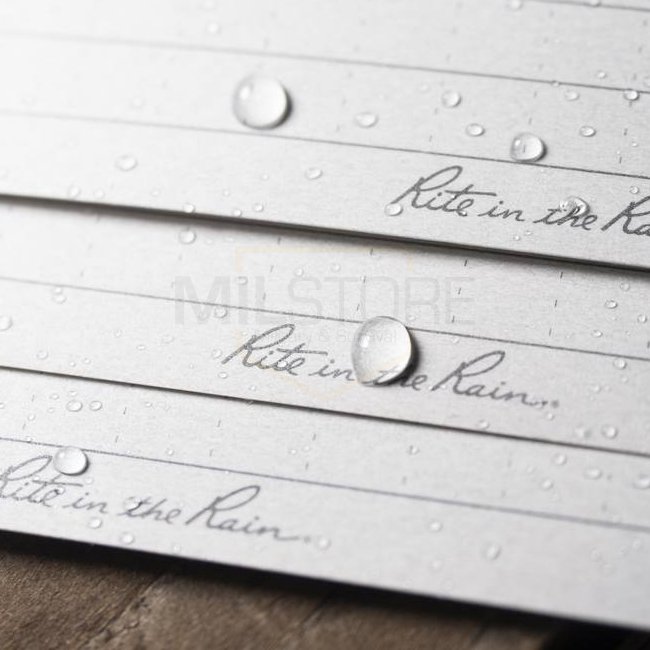 Rite in the Ra
MILSTORE
& Survival
Rite in the Rain...
Rite in the Rain...